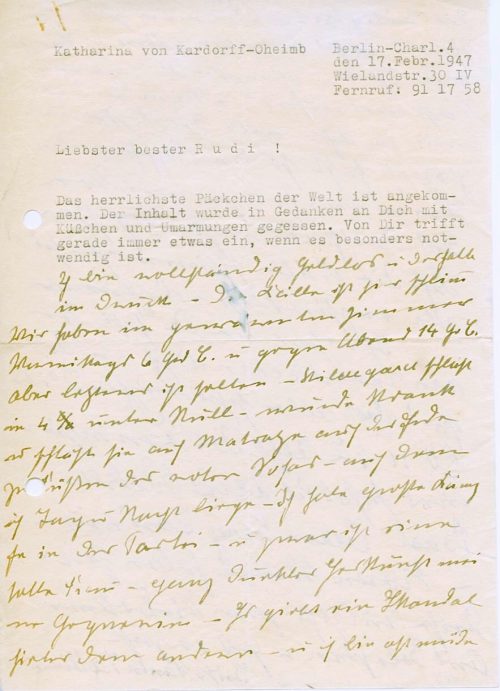 Katharina von Kardorff-Oheimb
Berlin-Charl.4
den 17.Febr.1947
Wielandstr.30 IV
Fernruf: 91 17 58
Liebster bester R u d i !
Das herrlichste Päckchen der Welt ist angekom-
men. Der Inhalt wurde in Gedanken an Dich mit
Küßchen und Umarmungen gegessen. Von Dir trifft
gerade immer etwas ein, wenn es besonders not-
wendig ist.
Ich bin vollständig Geldlos u deshalb
im Druck – Die Kälte ist hier schlimm
Wir haben im genannten Zimmer
Vormittags 6 Grd C. u gegen Abend 14 Grd C.
aber letzteres ist selten – Hildegard schläft
in 4 unter Null – wurde krank
u schläft sie auf Matratze auf der Erde
zu Füßen des roten Sofas – auf dem
ich Tag u Nacht liege – Ich habe große
in der Partei – u zwar ist eine
– ganz
Gegnerin – Es giebt ein Skandal
hinter dem andern – u ich bin oft müde